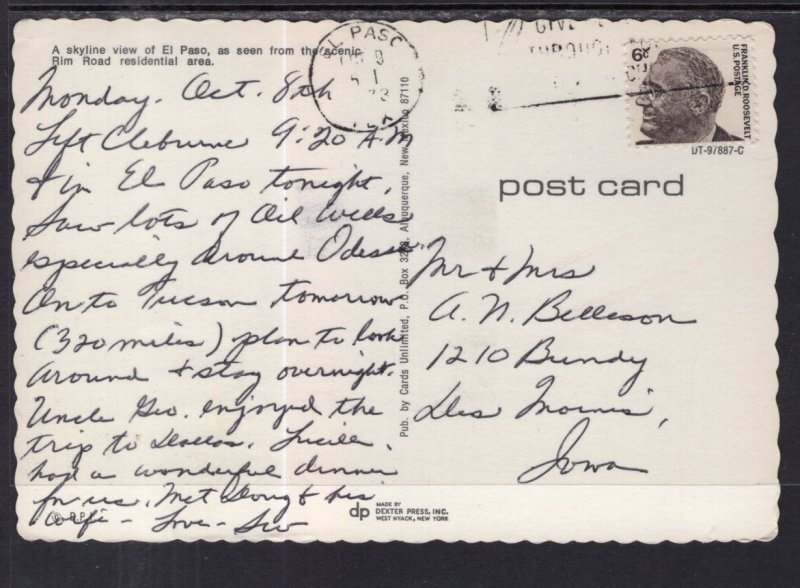 A skyline view of El Paso, as seen from the scenic
Rim Road residential area.
Monday. Oct. 8th
Left Cleburne 9:20 A.M
& in El Paso tonight.
Saw lots of Oil Wells
especially around Odessa.
On to Tucson tomorrow
(320 miles) plan to look
around & stay overnight.
Uncle Geo. enjoyed the
trip to Dallas. Lucille
had a wonderful dinner
for us. Met Doug & his
wife - Love -
EL PASO
GIVE
THROUGH
6¢
FRANKLIN D. ROOSEVELT
U.S. POSTAGE
DT-97887-C
post card
Mr & Mrs
A. N. Belleson
1210 Bundy
Des Moines,
Iowa
Pub. by Cards Unlimited, P.O. Box Albuquerque, New Mexico 87110
dp MADE BY
DEXTER PRESS, INC.
WEST NYACK, NEW YORK